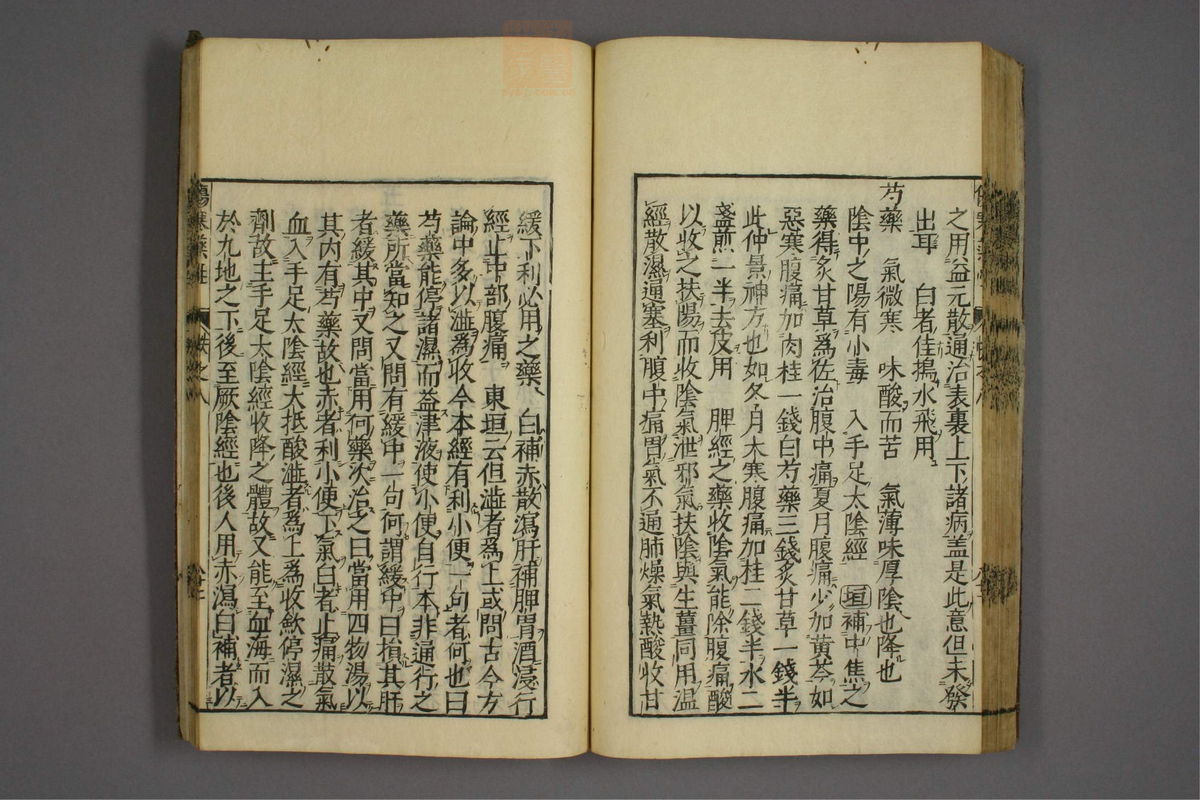 之用益元散通治表裏上下諸病盖是此意但未發
出耳　白者佳搗水飛用
芍藥　氣微寒　味酸而苦　氣薄味厚陰也降也
陰中之陽有小毒　入手足太陰經　垣補中焦之
藥得炙甘草爲佐治腹中痛夏月腹痛少加黄芩如
惡寒腹痛加肉桂一錢白芍藥三錢炙甘草一錢半
此仲景神方也如冬月大寒腹痛加桂二錢半水二
盞煎一半去皮用　脾經之藥收陰氣能除腹痛酸
以收之扶陽而收陰氣泄邪氣扶陰與生薑同用温
經散濕通塞利腹中痛胃氣不通肺燥氣熱酸收甘
緩下利必用之藥　白補赤散瀉肝補脾胃酒浸行
經止中部腹痛　東垣云但澁者爲上或問古今方
論中多以澁爲收今本經有利小便一句者何也曰
芍藥能停諸濕而益津液使小便自行本非通行之
藥所當知之又問有緩中一句何謂緩中曰損其肝
者緩其中又問當用何藥以治之曰當用四物湯以
其内有芍藥故也赤者利小便下氣白者止痛散氣
血入手足太陰經大抵酸澁者爲上爲收斂停濕之
劑故主手足太陰經收降之體故又能至血海而入
於九地之下後至厥陰經也後人用赤瀉白補者以